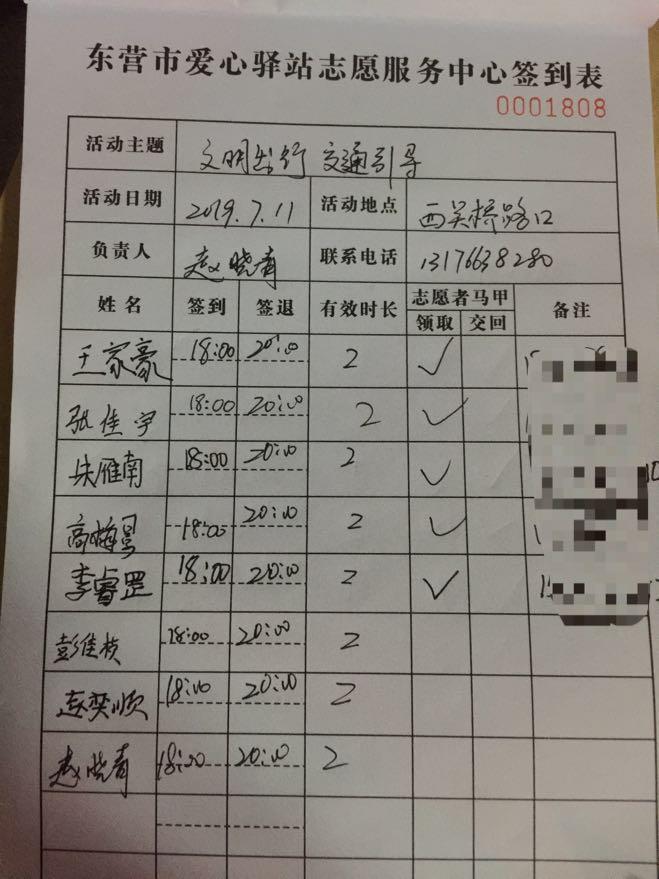 东营市爱心驿站志愿服务中心签到表
0001808
活动主题 文明出行 交通引导
活动日期 2019.7.11 活动地点 西关桥路口
负责人 赵晓青 联系电话 13176638280
姓名 签到 签退 有效时长 志愿者马甲 备注
领取 交回
王家豪 18:00 20:00 2 ✓
张佳宇 18:00 20:00 2 ✓
朱雁南 18:00 20:00 2 ✓
高梅 18:00 20:00 2 ✓
李睿罡 18:00 20:00 2 ✓
彭佳 18:00 20:00 2
赵奕顺 18:00 20:00 2
赵晓青 18:00 20:00 2